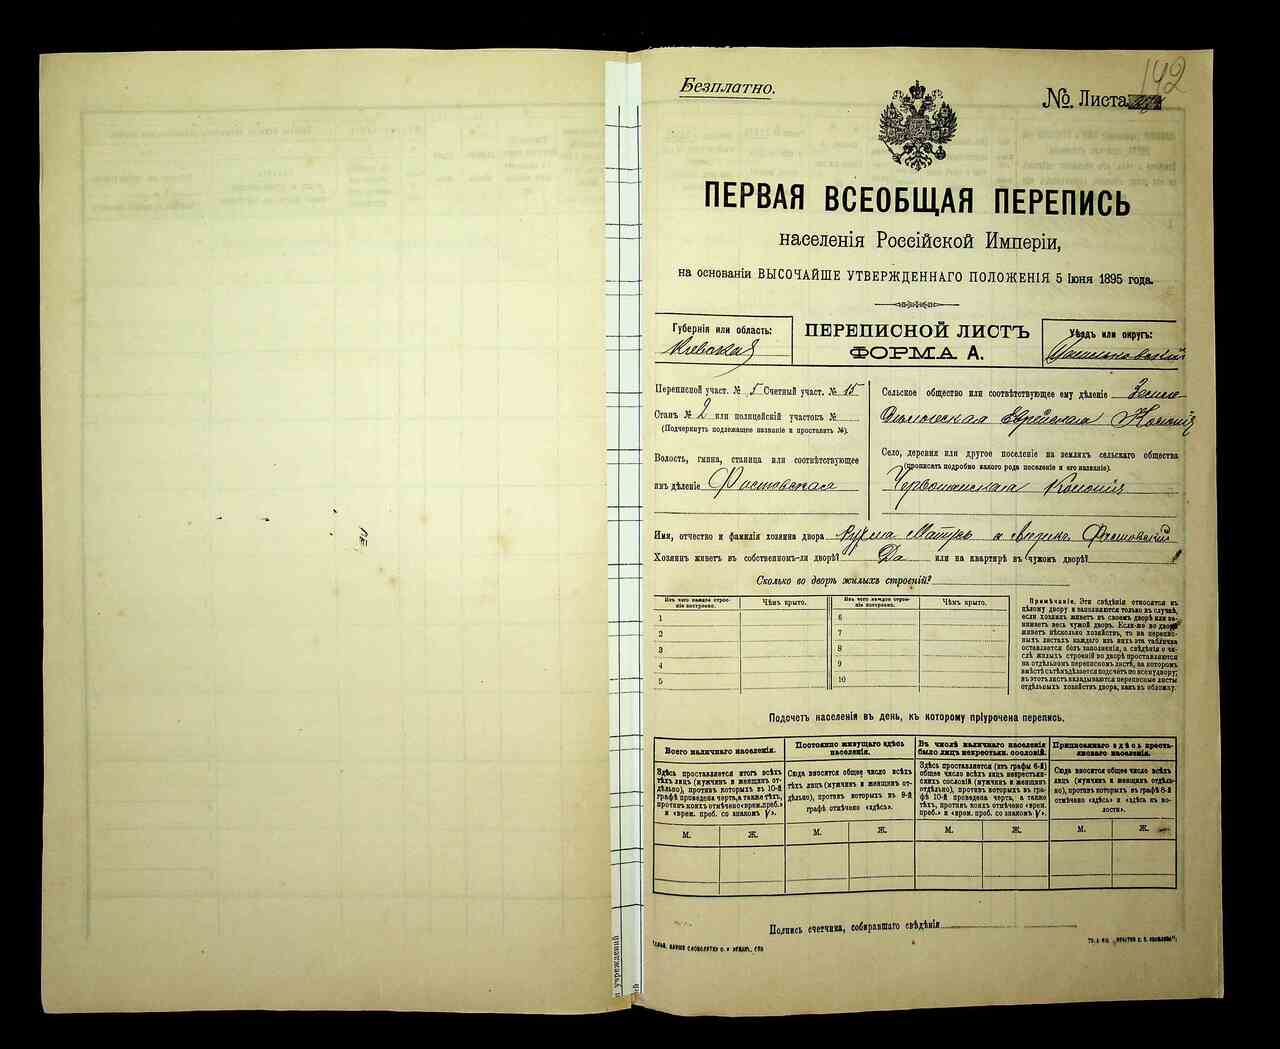 142
Безплатно.
№ Листа
ПЕРВАЯ ВСЕОБЩАЯ ПЕРЕПИСЬ
населенія Россійской Имперіи,
на основаніи ВЫСОЧАЙШЕ УТВЕРЖДЕННАГО ПОЛОЖЕНІЯ 5 Іюня 1895 года.
Губернія или область:
Кіевская
ПЕРЕПИСНОЙ ЛИСТЪ
ФОРМА А.
Уѣздъ или округъ:
Васильковскій
Переписной участ. № 5 Счетный участ. № 15
Станъ № 2 или полицейскій участокъ №
(Подчеркнуть подлежащее названіе и проставить №).
Волость, гмина, станица или соотвѣтствующее
имъ дѣленіе Фастовская
Сельское общество или соотвѣтствующее ему дѣленіе Земле-
дѣльческая Еврейская Колонія
Село, деревня или другое поселеніе на земляхъ сельскаго общества
(прописать подробно какого рода поселеніе и его названіе).
Червонянская Колонія
Имя, отчество и фамилія хозяина двора Фастовскій
Хозяинъ живетъ въ собственномъ-ли дворѣ? Да или на квартирѣ въ чужомъ дворѣ?
Сколько во дворѣ жилыхъ строеній?
Изъ чего каждое строе-
ніе построено.
Чѣмъ крыто.
Изъ чего каждое строе-
ніе построено.
Чѣмъ крыто.
1 6
2 7
3 8
4 9
5 10
Примѣчаніе. Эти свѣдѣнія относятся къ
цѣлому двору и заполняются только въ случаѣ,
если хозяинъ живетъ въ своемъ дворѣ или за-
нимаетъ весь чужой дворъ. Если-же во дворѣ
живетъ нѣсколько хозяйствъ, то на перепис-
ныхъ листахъ каждаго изъ нихъ эта табличка
оставляется безъ заполненія, а свѣдѣнія о чи-
слѣ жилыхъ строеній во дворѣ проставляются
на отдѣльномъ переписномъ листѣ, на которомъ
вмѣстѣ съ тѣмъ дѣлается подсчетъ по всему двору;
въ этотъ листъ вкладываются переписные листы
отдѣльныхъ хозяйствъ двора, какъ въ обложку.
Подсчетъ населенія въ день, къ которому пріурочена перепись.
Всего наличнаго населенія.
Здѣсь проставляется итогъ всѣхъ
тѣхъ лицъ (мужчинъ и женщинъ от-
дѣльно), противъ которыхъ въ 10-й
графѣ проведена черта, а также тѣхъ,
противъ коихъ отмѣчено «врем. преб.»
и «врем. преб. со знакомъ V».
Постоянно живущаго здѣсь
населенія.
Сюда вносится общее число всѣхъ
тѣхъ лицъ (мужчинъ и женщинъ от-
дѣльно), противъ которыхъ въ 9-й
графѣ отмѣчено «здѣсь».
Въ числѣ наличнаго населенія
было лицъ некрестьян. сословій.
Здѣсь проставляется (изъ графы 6-й)
общее число всѣхъ лицъ некрестьян-
скихъ сословій (мужчинъ и женщинъ
отдѣльно), противъ которыхъ въ гра-
фѣ 10-й проведена черта, а также
тѣхъ, противъ коихъ отмѣчено «врем.
преб.» и «врем. преб. со знакомъ V».
Приписаннаго здѣсь кресть-
янскаго населенія.
Сюда вносится общее число всѣхъ
лицъ (мужчинъ и женщинъ отдѣль-
но), противъ которыхъ въ графѣ 8-й
отмѣчено «здѣсь» и «здѣсь къ во-
лости».
М. Ж. М. Ж. М. Ж. М. Ж.
Подпись счетчика, собиравшаго свѣдѣнія
и учреждений